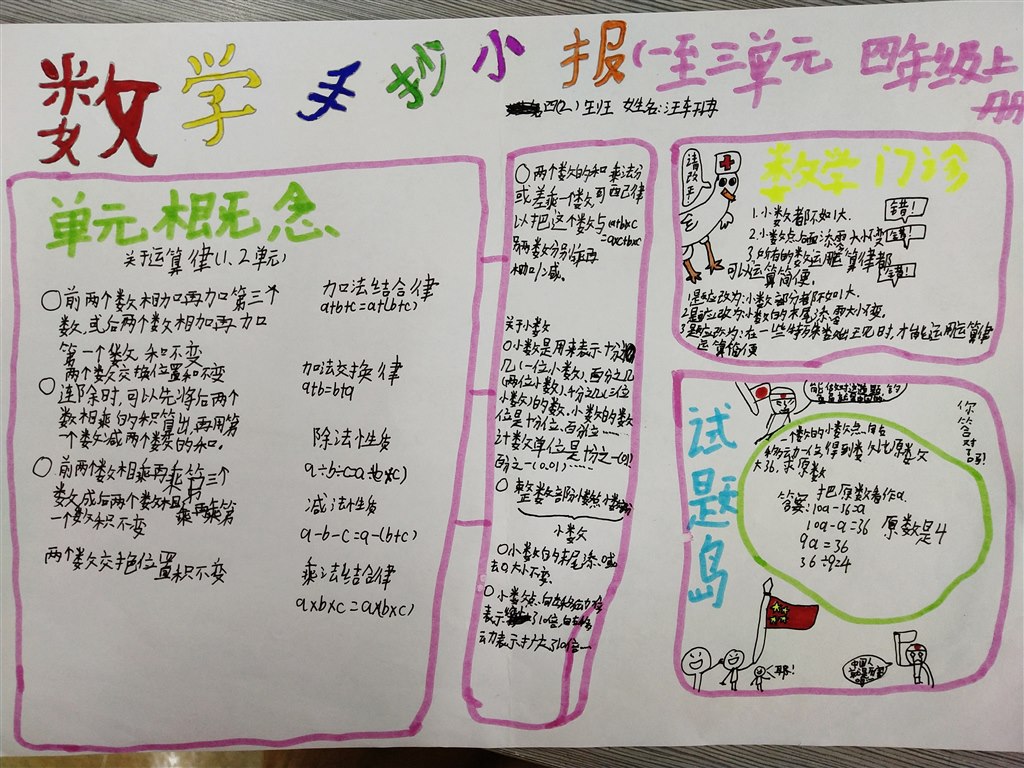 数学手抄小报(一至三单元 四年级上册
四(2)班 姓名:汪
单元概念
关于运算律(1、2单元)
○前两个数相加再加第三个
数,或后两个数相加再加
第一个数,和不变
两个数交换位置和不变
○连除时,可以先将后两个
数相乘的积算出,再用第
一个数减两个数的和。
○前两个数相乘再乘第三个
数或后两个数相乘再乘第
一个数积不变
两个数交换位置积不变
加法结合律
a+b+c=a+(b+c)
加法交换律
a+b=b+a
除法性质
a÷b÷c=a÷(b×c)
减法性质
a-b-c=a-(b+c)
乘法结合律
a×b×c=a×(b×c)
○两个数的和 乘法分
或差乘一个数可 配律
以把这个数与
两数分别乘再
相加/减。
关于小数
○小数是用来表示十分
几(一位小数),百分之几
(两位小数),千分之几(三位
小数)的数,小数的数
位是十分位、百分位……
计数单位是十分之一(0.1)
百分之一(0.01)……
○整数部分 小数点 小数部分
小数
○小数的末尾添0或
去0大小不变.
数学门诊
请改正
1.小数都不如1大.
错!
2.小数点后面添零大小不变
错!
3.所有的数运用运算律都
可以运算简便。
错!
1.是应改为:小数部分都不如1大.
2.是应改为小数的末尾添零大小不变.
3.是应改为:在一些特殊数出现时,才能运用运算律
运算简便
试题岛
你答对了吗?
一个数的小数点向右
移动一位得到数比原数
大36,求原数
答案: 把原数看作a.
10a-36=a
10a-a=36 原数是4
9a=36
36÷9=4
耶!